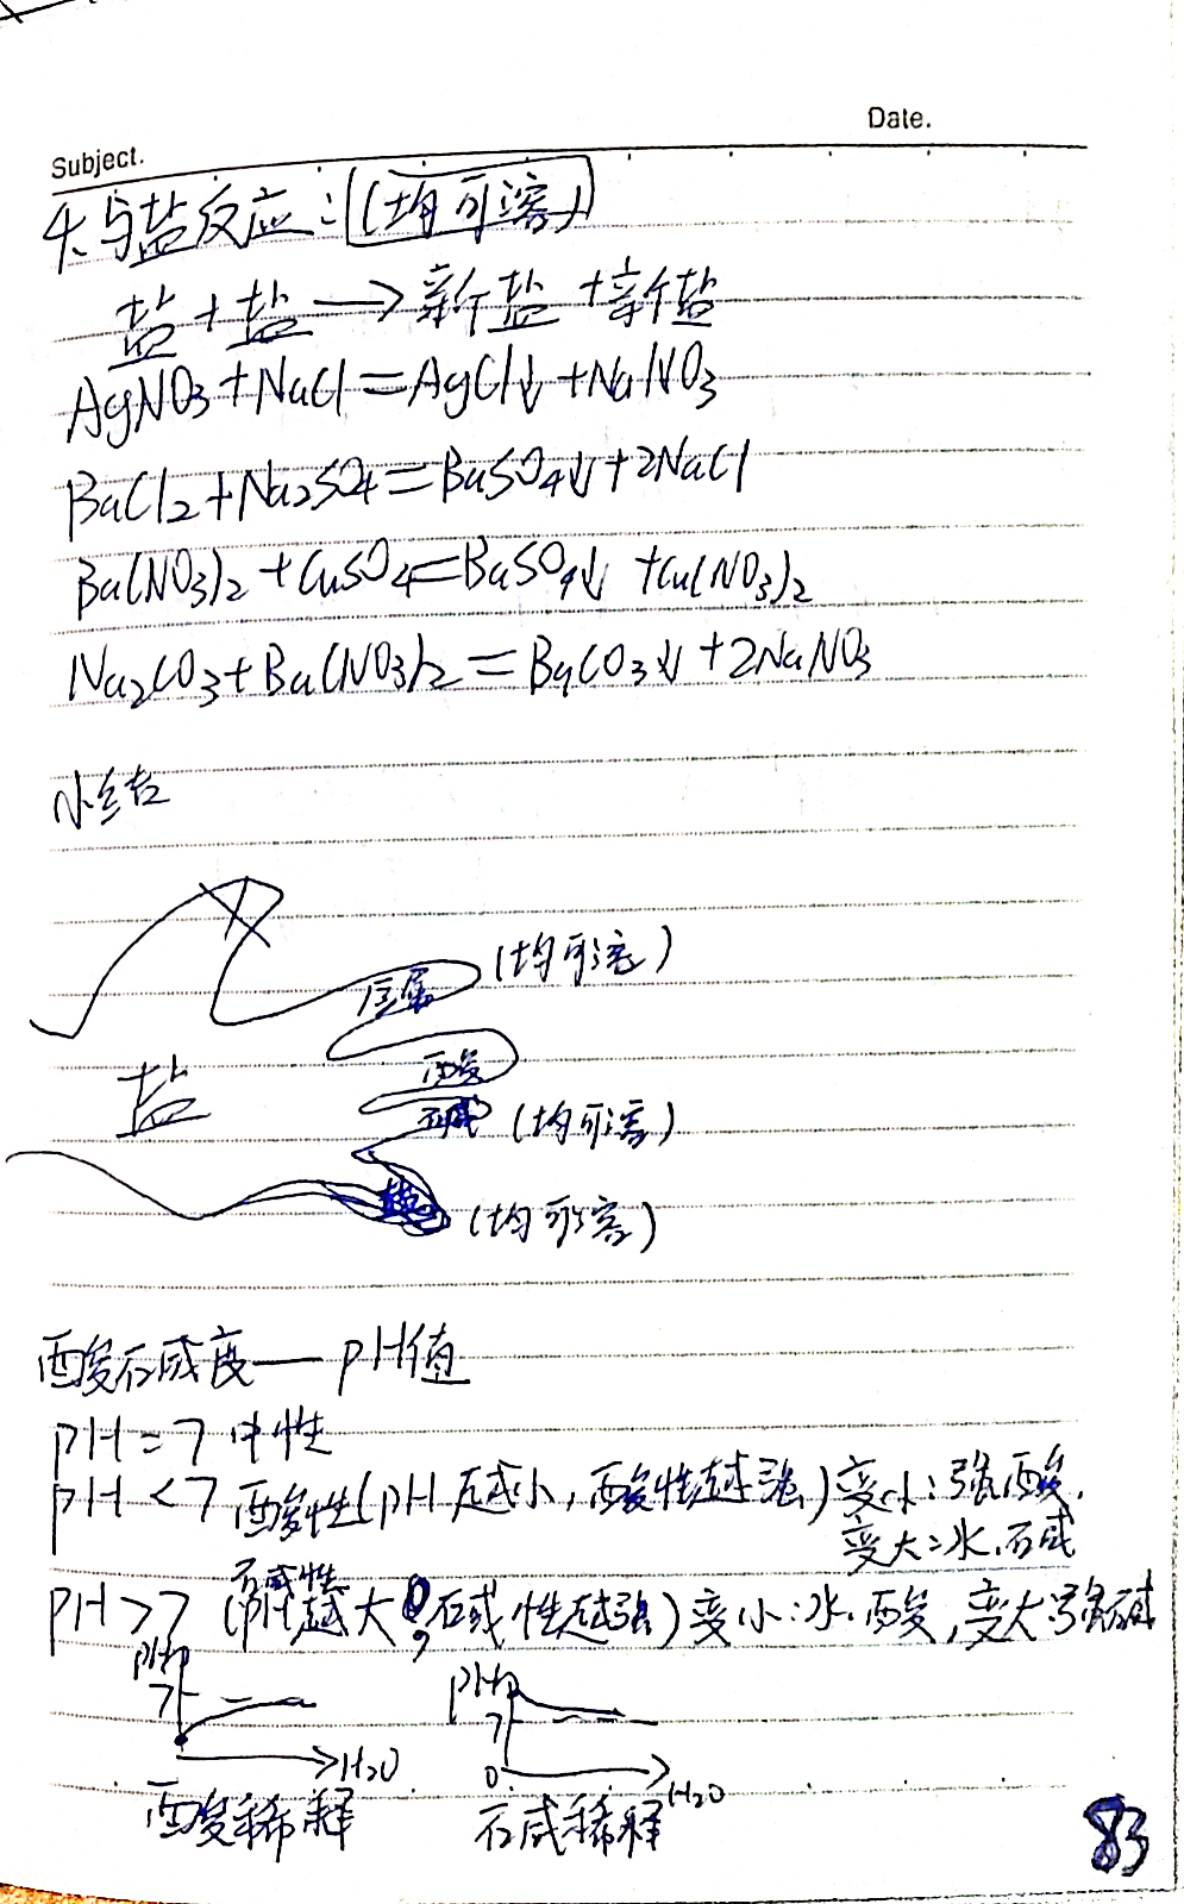 Date.
Subject.
4.与盐反应:(均可溶)
盐+盐→新盐+新盐
AgNO₃+NaCl=AgCl↓+NaNO₃
BaCl₂+Na₂SO₄=BaSO₄↓+2NaCl
Ba(NO₃)₂+CuSO₄=BaSO₄↓+Cu(NO₃)₂
Na₂CO₃+Ba(NO₃)₂=BaCO₃↓+2NaNO₃
小结
金属 (均可溶)
盐
酸
碱 (均可溶)
盐 (均可溶)
酸碱度——pH值
pH=7 中性
pH<7 酸性(pH越小,酸性越强)变小:强酸.
变大:水.碱
碱性
pH>7 (pH越大,碱性越强)变小:水.酸,变大:强碱
pH
7
H₂O
酸稀释
pH
7
0
H₂O
碱稀释
83